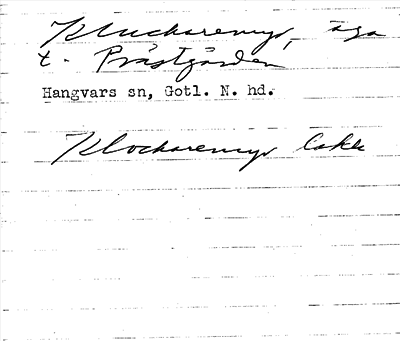 Kluckaremyr, äga
t. Prästgården
Hangvars sn, Gotl. N. hd.
Klockaremyr Lakk